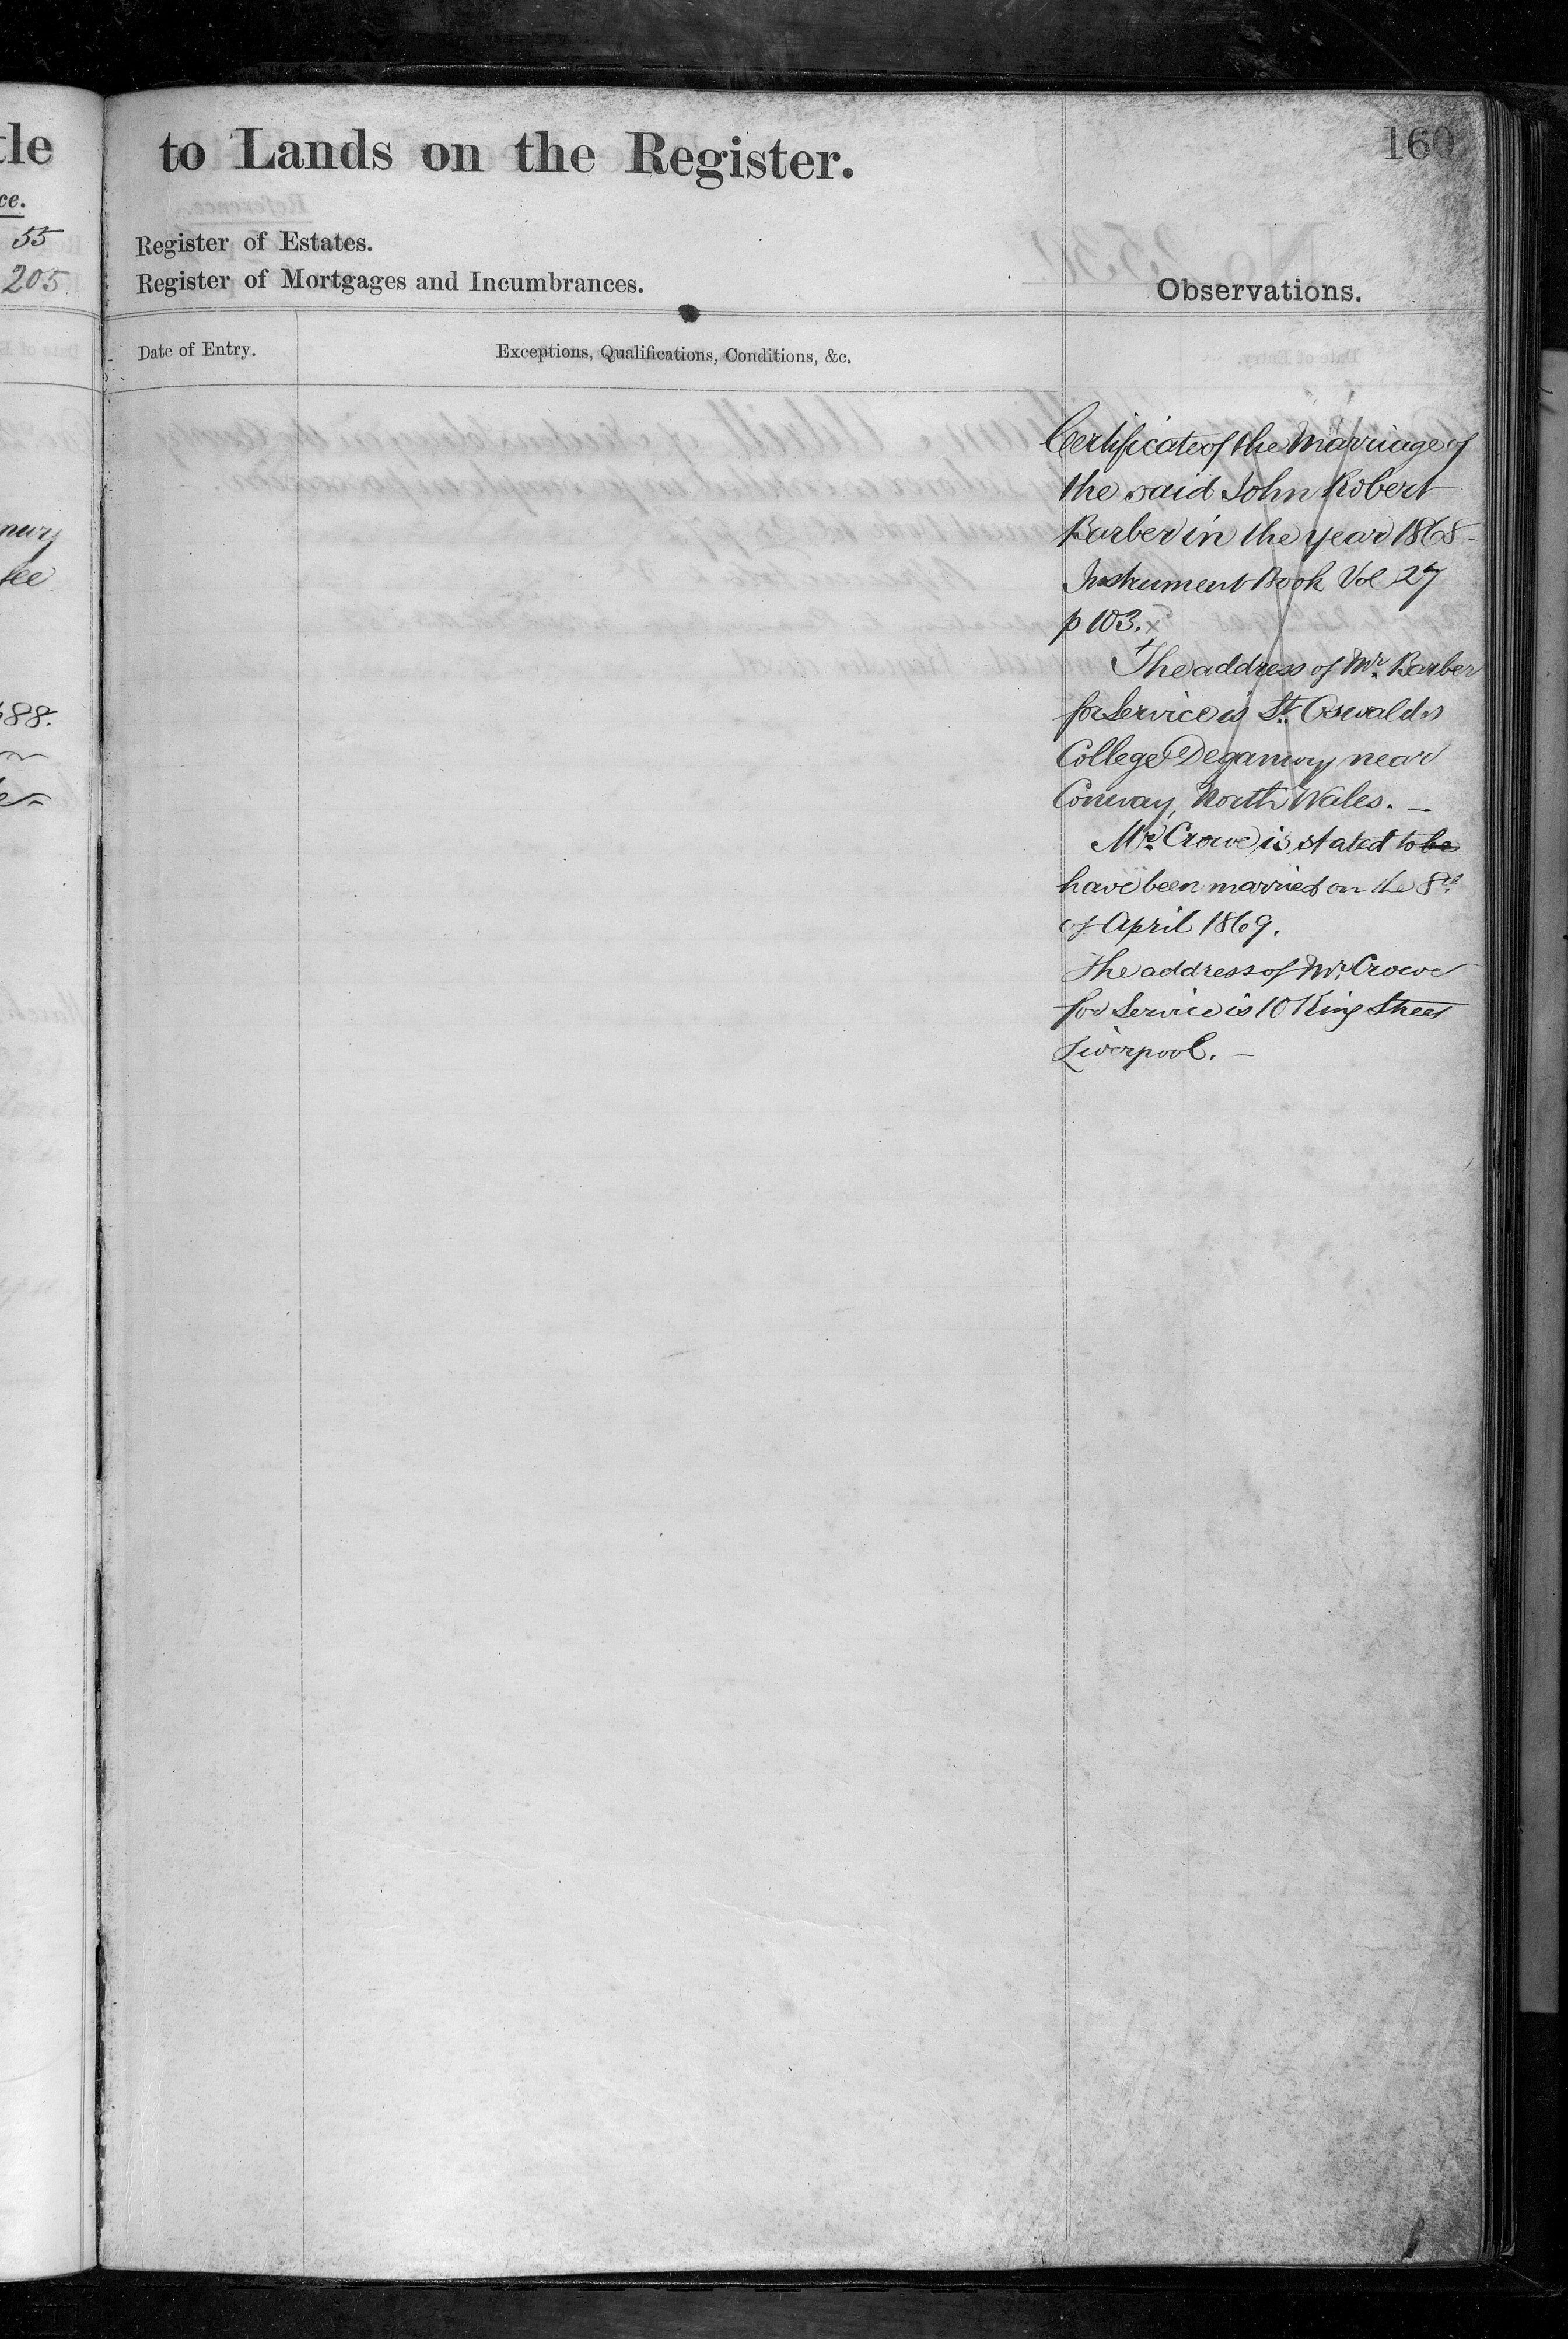 tle
ce.
55
205
nury
fee
688.
to Lands on the Register.
160
Register of Estates.
Register of Mortgages and Incumbrances.
Observations.
Date of Entry.
Exceptions, Qualifications, Conditions, &c.
Certificate of the Marriage of
the said John Robert
Barber in the year 1868 -
Instrument Book Vol 27
p 103. x
The address of Mr. Barber
for Service is St. Oswalds
College Deganwy near
Conway, North Wales. —
Mr. Crowe is stated to be
have been married on the 8th
of April 1869.
The address of Mr. Crowe
for Service is 10 King Street
Liverpool. —